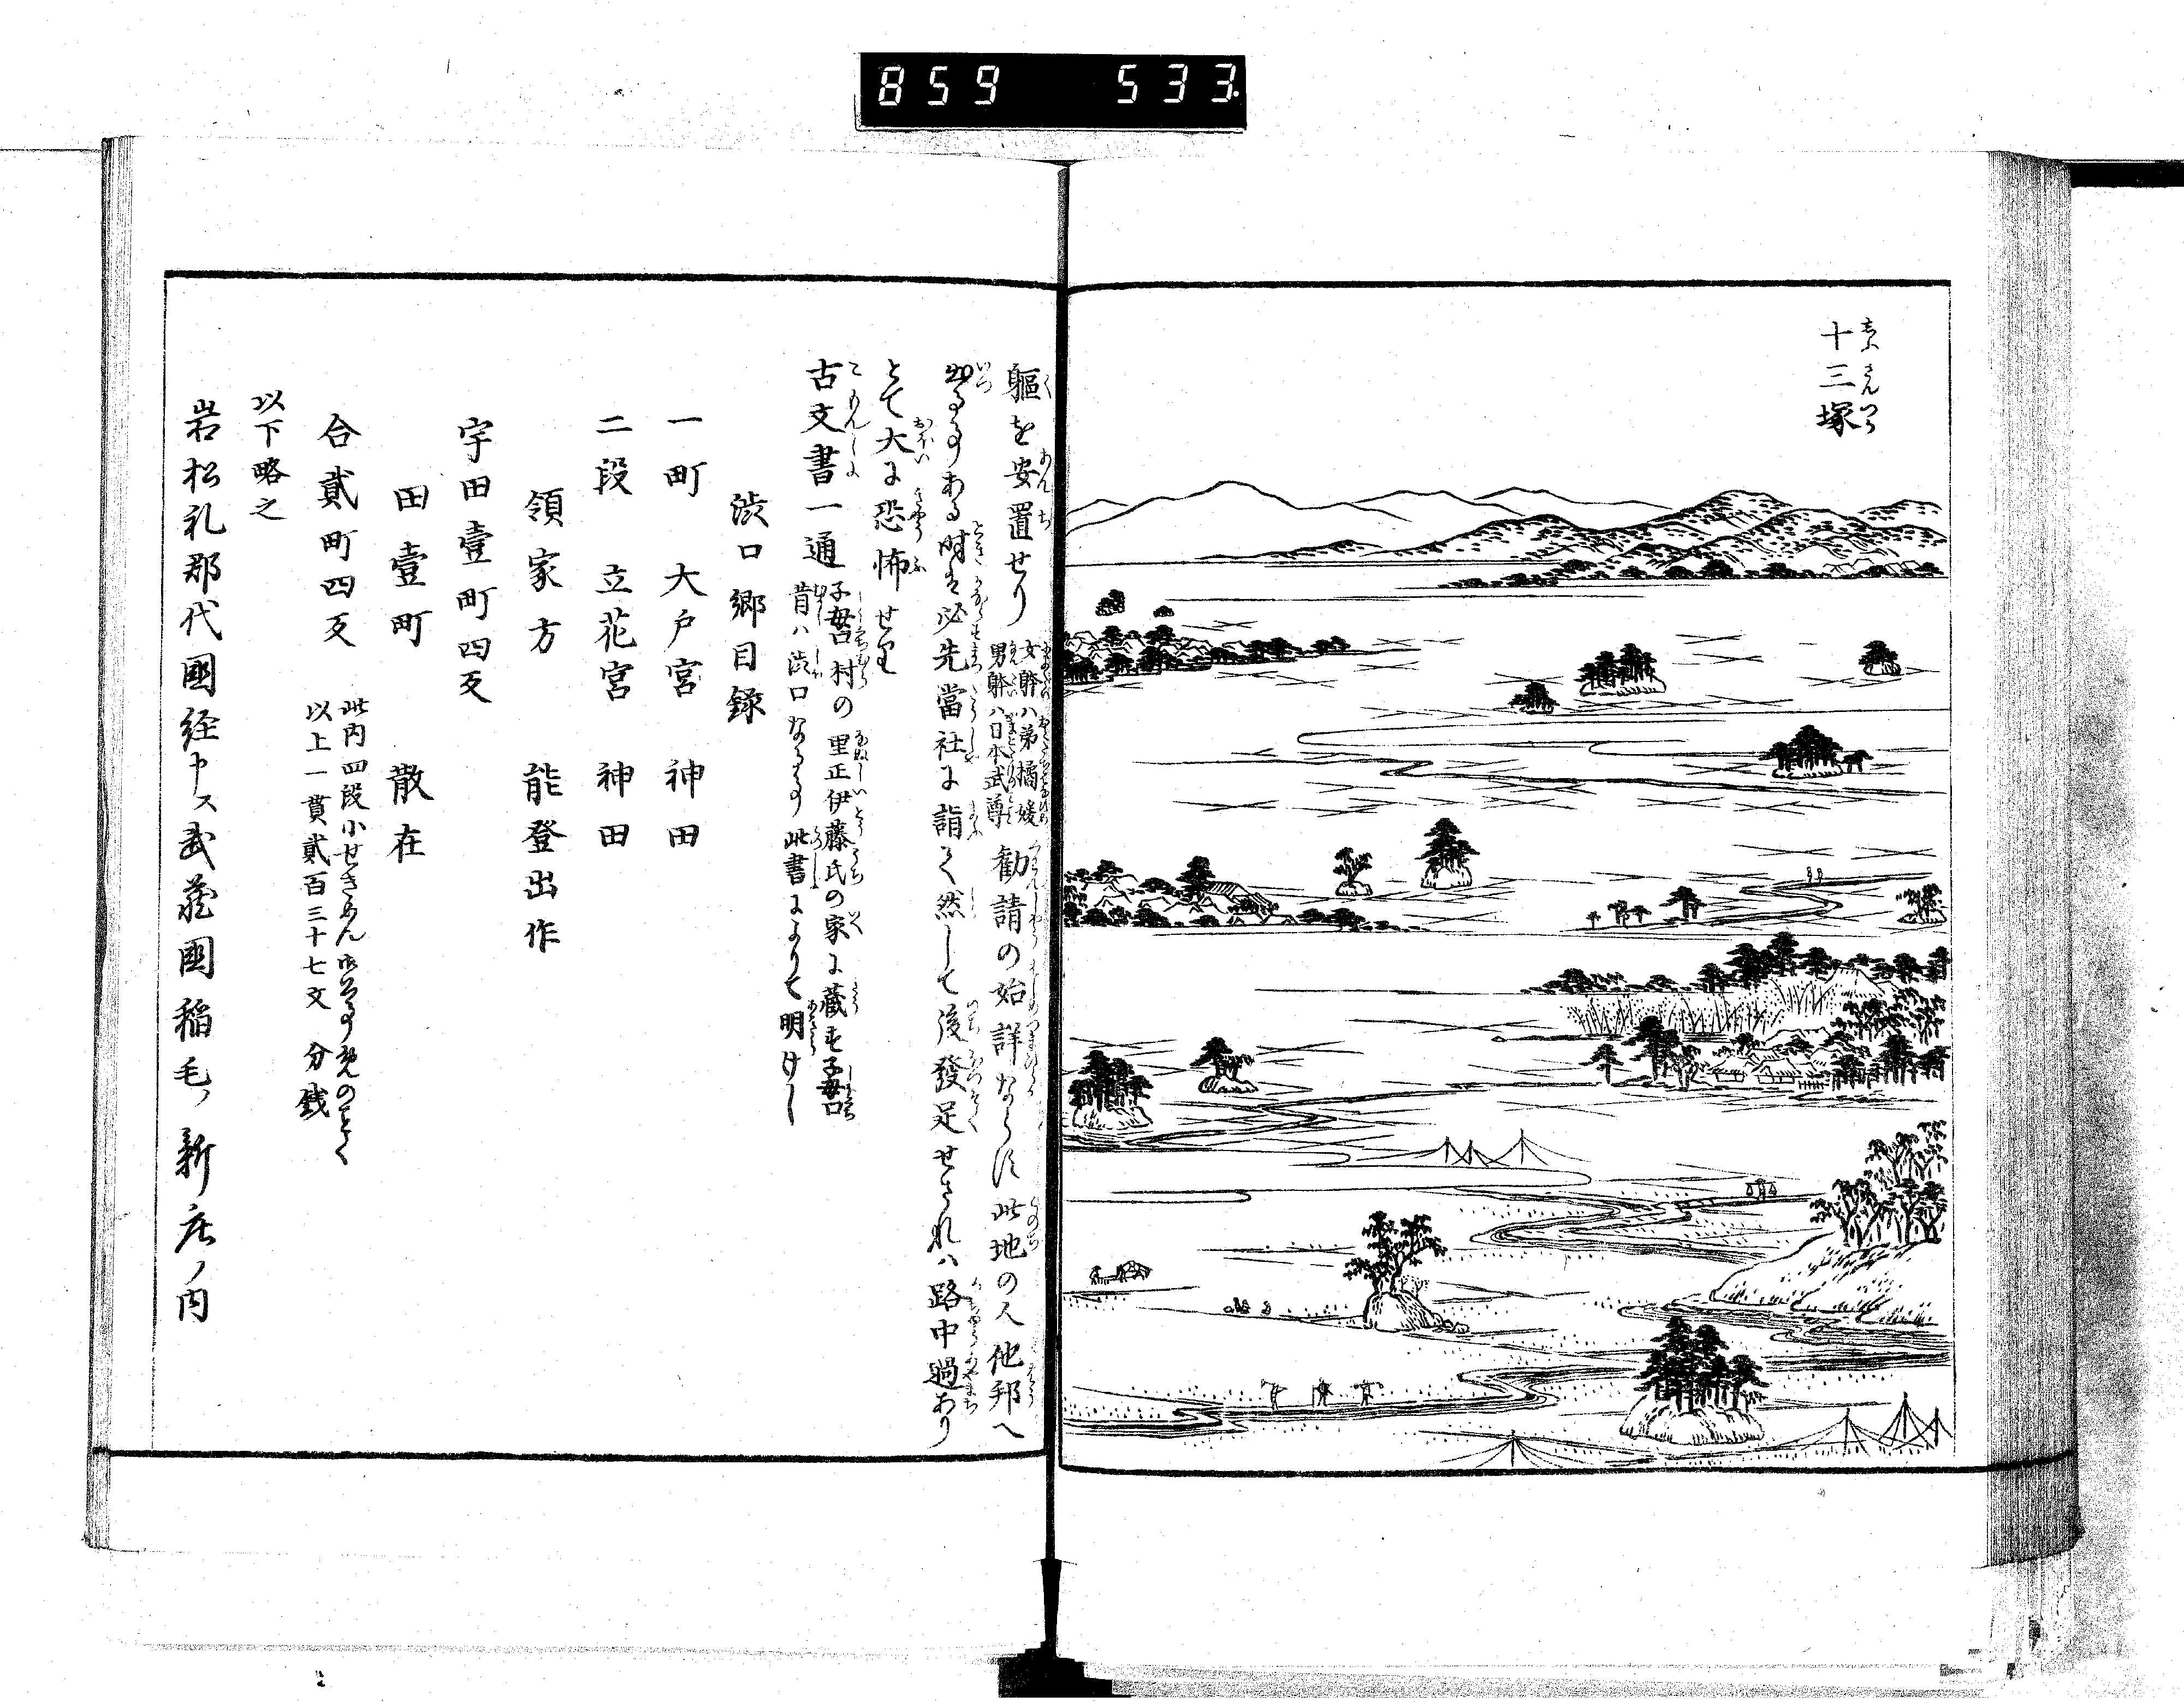 859 533
十三塚
躯を安置せり 女躰ハ弟橘媛 男躰ハ日本武尊 勧請の始詳ならす此地の人他邦へ
出る事ある時は必先當社に詣て然して後發足せされハ路中過あり
とて大に恐怖せり
古文書一通 子母口村の里正伊藤氏の家に蔵す子母口
昔ハ渋口なる事此書によりて明けし
渋口郷目録
一町 大戸宮 神田
二段 立花宮 神田
領家方 能登出作
宇田壹町四反
田壹町 散在
合貳町四反 此内四段小せきめん
以上一貫貳百三十七文 分銭
以下略之
岩松礼部代國経申ス武蔵國稲毛ノ新庄ノ内